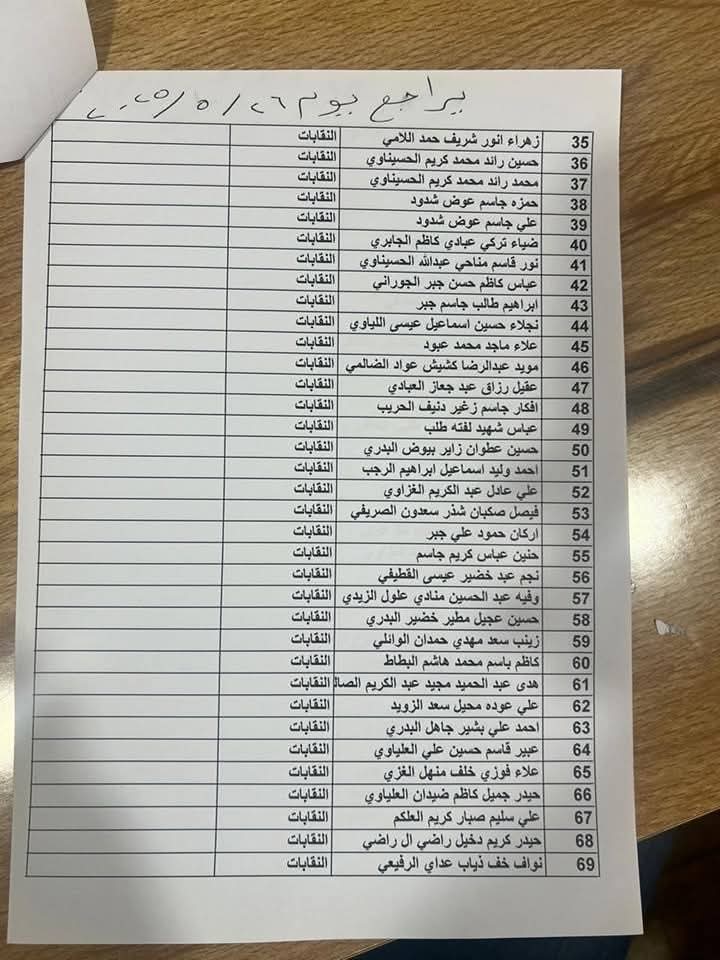 يراجع يوم ٢٦/٥/٢٠٢٥
35 زهراء انور شريف حمد اللامي النقابات
36 حسين رائد محمد كريم الحسيناوي النقابات
37 محمد رائد محمد كريم الحسيناوي النقابات
38 حمزه جاسم عوض شدود النقابات
39 علي جاسم عوض شدود النقابات
40 ضياء تركي عبادي كاظم الجابري النقابات
41 نور قاسم مناحي عبدالله الحسيناوي النقابات
42 عباس كاظم حسن جبر الجوراني النقابات
43 ابراهيم طالب جاسم جبر النقابات
44 نجلاء حسين اسماعيل عيسى اللياوي النقابات
45 علاء ماجد محمد عبود النقابات
46 مويد عبدالرضا كشيش عواد الضالمي النقابات
47 عقيل رزاق عبد جعاز العبادي النقابات
48 افكار جاسم زغير دنيف الحريب النقابات
49 عباس شهيد لفته طلب النقابات
50 حسين عطوان زاير بيوض البدري النقابات
51 احمد وليد اسماعيل ابراهيم الرجب النقابات
52 علي عادل عبد الكريم الغزاوي النقابات
53 فيصل صكبان شذر سعدون الصريفي النقابات
54 اركان حمود علي جبر النقابات
55 حنين عباس كريم جاسم النقابات
56 نجم عبد خضير عيسى القطيفي النقابات
57 وفيه عبد الحسين منادي علول الزيدي النقابات
58 حسين عجيل مطير خضير البدري النقابات
59 زينب سعد مهدي حمدان الوائلي النقابات
60 كاظم باسم محمد هاشم البطاط النقابات
61 هدى عبد الحميد مجيد عبد الكريم الصال النقابات
62 علي عوده محيل سعد الزويد النقابات
63 احمد علي بشير جاهل البدري النقابات
64 عبير قاسم حسين علي العلياوي النقابات
65 علاء فوزي خلف منهل الغزي النقابات
66 حيدر جميل كاظم ضيدان العلياوي النقابات
67 علي سليم صبار كريم العلكم النقابات
68 حيدر كريم دخيل راضي ال راضي النقابات
69 نواف خف ذياب عداي الرفيعي النقابات